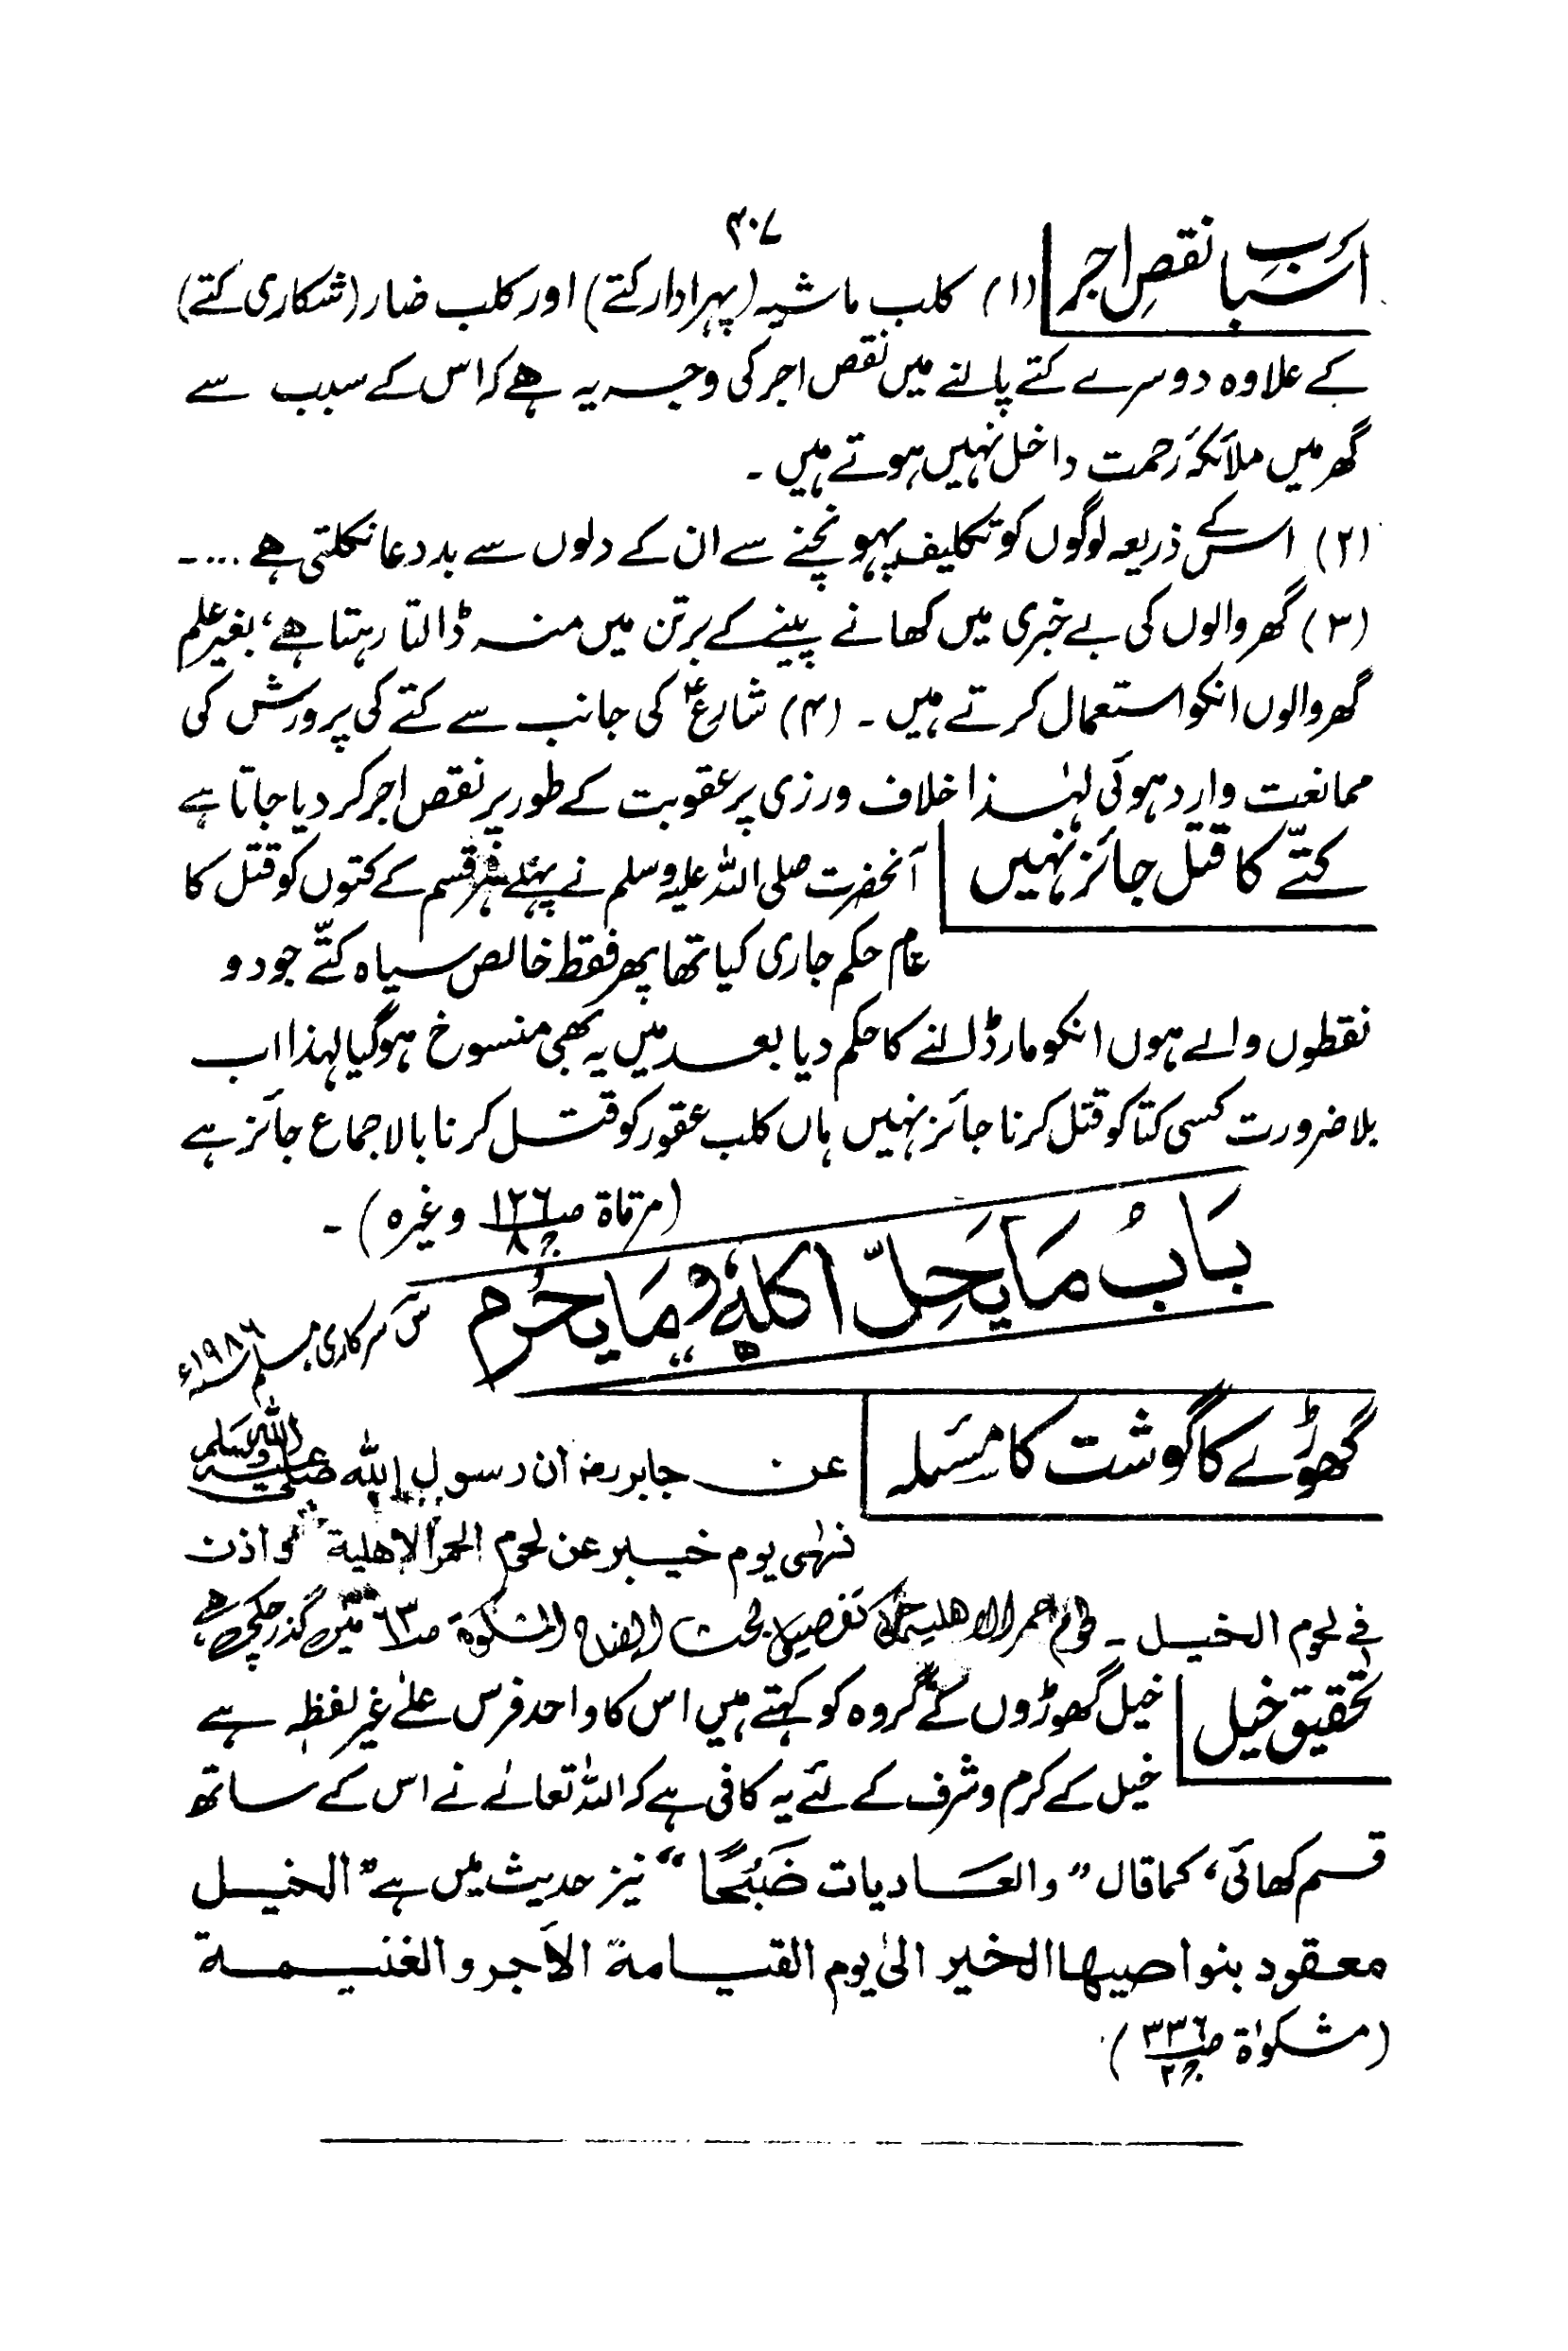 ۴۰۷
اسباب نقص اجر (۱) کلب ماشیہ (پہرادار کتے) اور کلب ضار (شکاری کتے)
کے علاوہ دوسرے کتے پالنے میں نقص اجر کی وجہ یہ ہے کہ اس کے سبب سے
گھر میں ملائکۂ رحمت داخل نہیں ہوتے ہیں ۔
(۲) اس کے ذریعہ لوگوں کو تکلیف پہونچنے سے ان کے دلوں سے بددعا نکلتی ہے ....۔
(۳) گھر والوں کی بے خبری میں کھانے پینے کے برتن میں منہ ڈالتا رہتا ہے، بغیر علم
گھر والوں انکو استعمال کرتے ہیں ۔ (۴) شارعؑ کی جانب سے کتے کی پرورش کی
ممانعت وارد ہوئی لہٰذا خلاف ورزی پر عقوبت کے طور پر نقص اجر کردیا جاتا ہے
کتّے کا قتل جائز نہیں آنحضرت صلی اللہ علیہ وسلم نے پہلے ہر قسم کے کتوں کو قتل کا
عام حکم جاری کیا تھا پھر فقط خالص سیاہ کتّے جو دو
نقطوں والے ہوں انکو مارڈالنے کا حکم دیا بعد میں یہ بھی منسوخ ہوگیا لہذا اب
بلا ضرورت کسی کتا کو قتل کرنا جائز نہیں ہاں کلب عقور کو قتل کرنا بالاجماع جائز ہے
(مرقاة صـ ۱۲۶ جـ ۸ وغیرہ) ۔
بَابُ مَا یَحِلّ اکلہٗ وَمَا یحرُم
س سرکاری مسلم ۱۹۸۶ء
گھوڑے کا گوشت کا مسئلہ عن جابر رضؓ ان رسول اللہ صلی اللہ علیہ وسلم
نہٰی یوم خیبر عن لحوم الحمر الاھلیة و اذن
فی لحوم الخیل ۔ لحوم حمر الاھلیہ کی تفصیلی بحث ایضاح المشکوة صـ ۶۳ میں گذر چکی ہے
تحقیق خیل خیل گھوڑوں کے گروہ کو کہتے ہیں اس کا واحد فرس علیٰ غیر لفظہٖ ہے
خیل کے کرم و شرف کے لئے یہ کافی ہے کہ اللہ تعالےٰ نے اس کے ساتھ
قسم کھائی، کما قال ”والعادیات ضَبْحًا“ نیز حدیث میں ہے ”الخیل
معقود بنواصیھا الخیر الیٰ یوم القیامة الاَجر و الغنیمة
(مشکوٰة صـ ۳۳۶ جـ ۲)